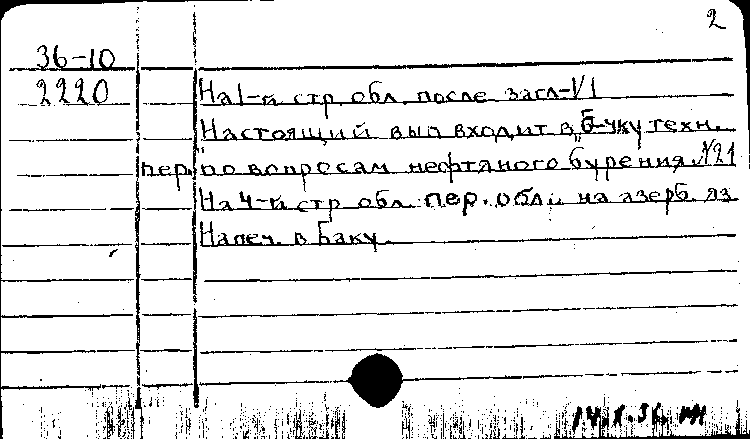 2
36-10
2220
На 1-й стр. обл. после загл-№1
Настоящий вып входит в "б-чку техн.
пер. по вопросам нефтяного бурения" №21
На 4-й стр обл. пер. обл. на азерб. яз
Напеч. в Баку.
14.X.36.